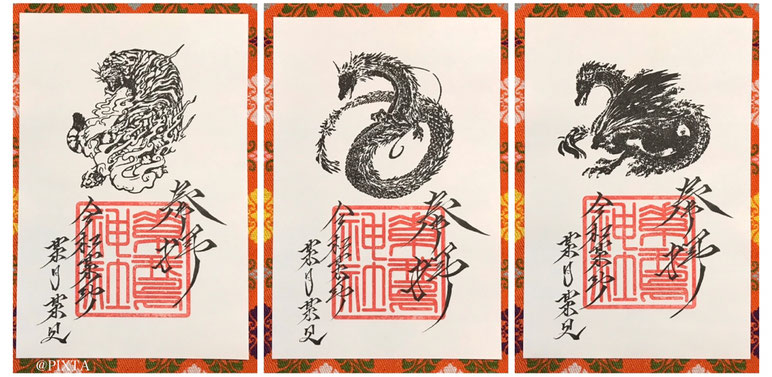 奉拝
神社
令和某年
某月某日
奉拝
神社
令和某年
某月某日
奉拝
神社
令和某年
某月某日
@PIXTA